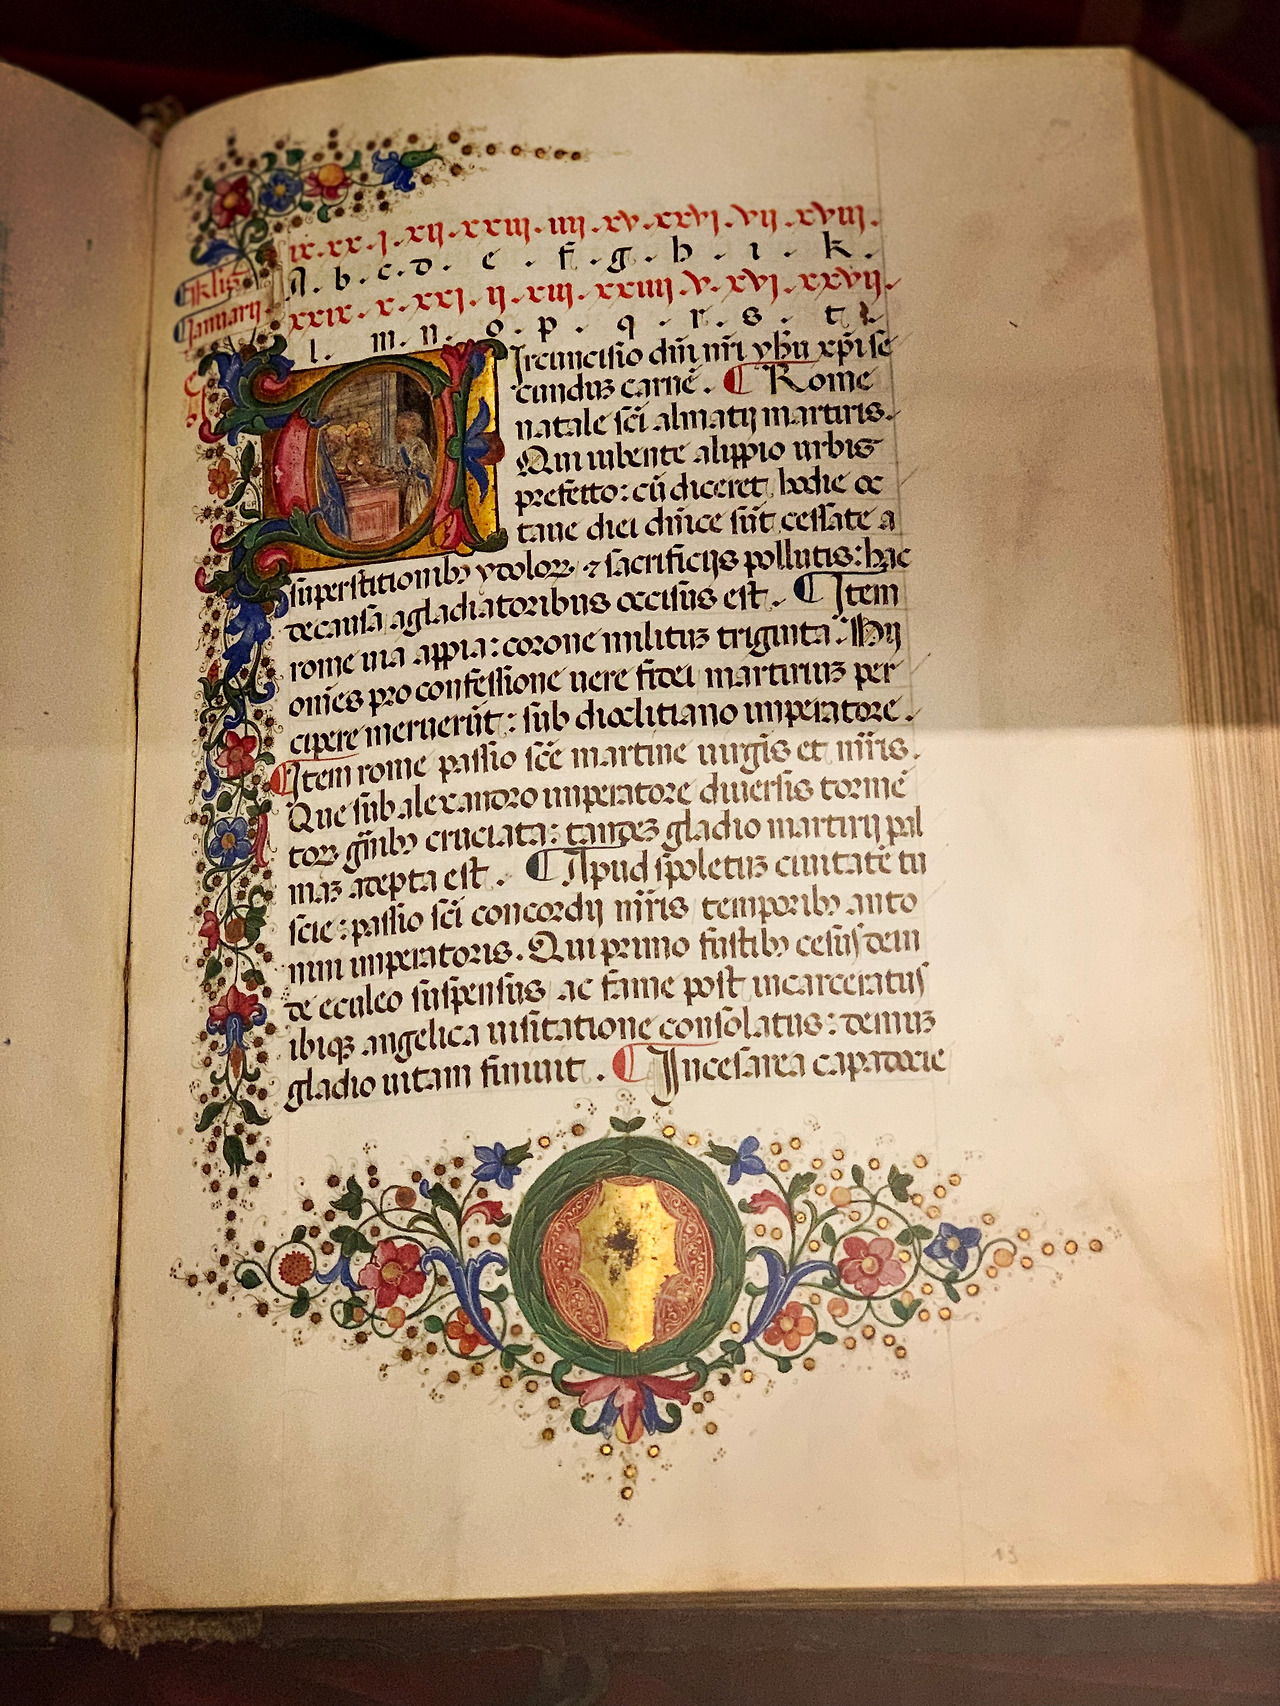 ix. xx. j. xij. xxiij. iiij. xv. xxvj. vij. xviij.
A. b. c. d. e. f. g. h. i. k.
xxix. x. xxj. ij. xiij. xxiiij. v. xvj. xxvij.
l. m. n. o. p. q. r. s. t.
klis
Januarij
Ircuncisio dñi nr̃i yhu xp̃i se
cunduȝ carnẽ. Rome
natale sc̃i almatij martiris.
Qui iubente alippio urbis
prefetto: cũ diceret hodie oc
taue diei dñice sũt cessate a
superstitionibꝫ ydoloꝝ ⁊ sacrificijs pollutis: hac
de causa a gladiatoribus occisus est. Item
rome uia appia: corone militũȝ triginta. Hij
om̃es pro confessione uere fidei martiriuȝ per
cipere meruerũt: sub dioclitiano imperatore.
Item rome passio sc̃e martine uirgĩs et mr̃is.
Que sub alexandro imperatore diuersis tormẽ
toꝝ gñibꝫ cruciata: tandeȝ gladio martirij pal
maȝ adepta est. Apud spoletuȝ ciuitatẽ tu
scie: passio sc̃i concordij mr̃is temporibꝫ anto
nini imperatoris. Qui primo fustibꝫ cesus dein
de eculeo suspensus ac fame post incarceratus
ibiqȝ angelica uisitatione consolatus: demuȝ
gladio uitam finiuit. In cesarea capadocie
13